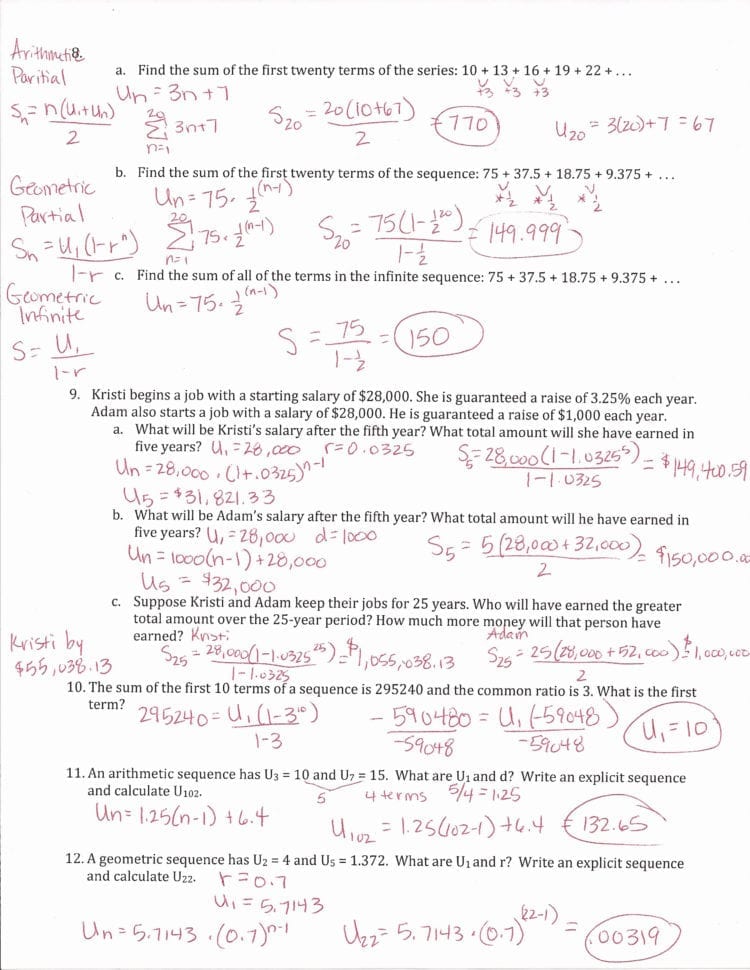 Arithmetic
Paritial
Sₙ = n(U₁+Uₙ) / 2
8.
a. Find the sum of the first twenty terms of the series: 10 + 13 + 16 + 19 + 22 + …
+3 +3 +3
Uₙ = 3n+7
20 Σ n=1 3n+7
S₂₀ = 20(10+67) / 2 = 770
U₂₀ = 3(20)+7 = 67
Geometric
Partial
Sₙ = U₁(1-rⁿ) / 1-r
b. Find the sum of the first twenty terms of the sequence: 75 + 37.5 + 18.75 + 9.375 + …
*½ *½ *½
Uₙ = 75 · ½^(n-1)
20 Σ n=1 75 · ½^(n-1)
S₂₀ = 75(1-½²⁰) / 1-½ = 149.999
c. Find the sum of all of the terms in the infinite sequence: 75 + 37.5 + 18.75 + 9.375 + …
Geometric
Infinite
S = U₁ / 1-r
Uₙ = 75 · ½^(n-1)
S = 75 / 1-½ = 150
9. Kristi begins a job with a starting salary of $28,000. She is guaranteed a raise of 3.25% each year.
Adam also starts a job with a salary of $28,000. He is guaranteed a raise of $1,000 each year.
a. What will be Kristi's salary after the fifth year? What total amount will she have earned in
five years? U₁ = 28,000 r=0.0325
Uₙ = 28,000 · (1+.0325)^n-1
U5 = $31,821.33
S₅ = 28,000(1-1.0325⁵) / 1-1.0325 = $149,400.59
b. What will be Adam's salary after the fifth year? What total amount will he have earned in
five years? U₁ = 28,000 d=1000
Uₙ = 1000(n-1)+28,000
U5 = $32,000
S₅ = 5(28,000+32,000) / 2 = $150,000.00
c. Suppose Kristi and Adam keep their jobs for 25 years. Who will have earned the greater
total amount over the 25-year period? How much more money will that person have
earned? Kristi Adam
Kristi by
$55,038.13
S₂₅ = 28,000(1-1.0325²⁵) / 1-1.0325 = $1,055,038.13
S₂₅ = 25(28,000+52,000) / 2 = $1,000,000
10. The sum of the first 10 terms of a sequence is 295240 and the common ratio is 3. What is the first
term?
295240 = U₁(1-3¹⁰) / 1-3
-590480 / -59048 = U₁(-59048) / -59048
U₁ = 10
11. An arithmetic sequence has U₃ = 10 and U₇ = 15. What are U₁ and d? Write an explicit sequence
and calculate U₁₀₂.
5 4 terms 5/4 = 1.25
Uₙ = 1.25(n-1) + 6.4
U₁₀₂ = 1.25(102-1)+6.4 = 132.65
12. A geometric sequence has U₂ = 4 and U₅ = 1.372. What are U₁ and r? Write an explicit sequence
and calculate U₂₂.
r = 0.7
U₁ = 5.7143
Uₙ = 5.7143 · (0.7)^n-1
U₂₂ = 5.7143 · (0.7)^(22-1) = .00319